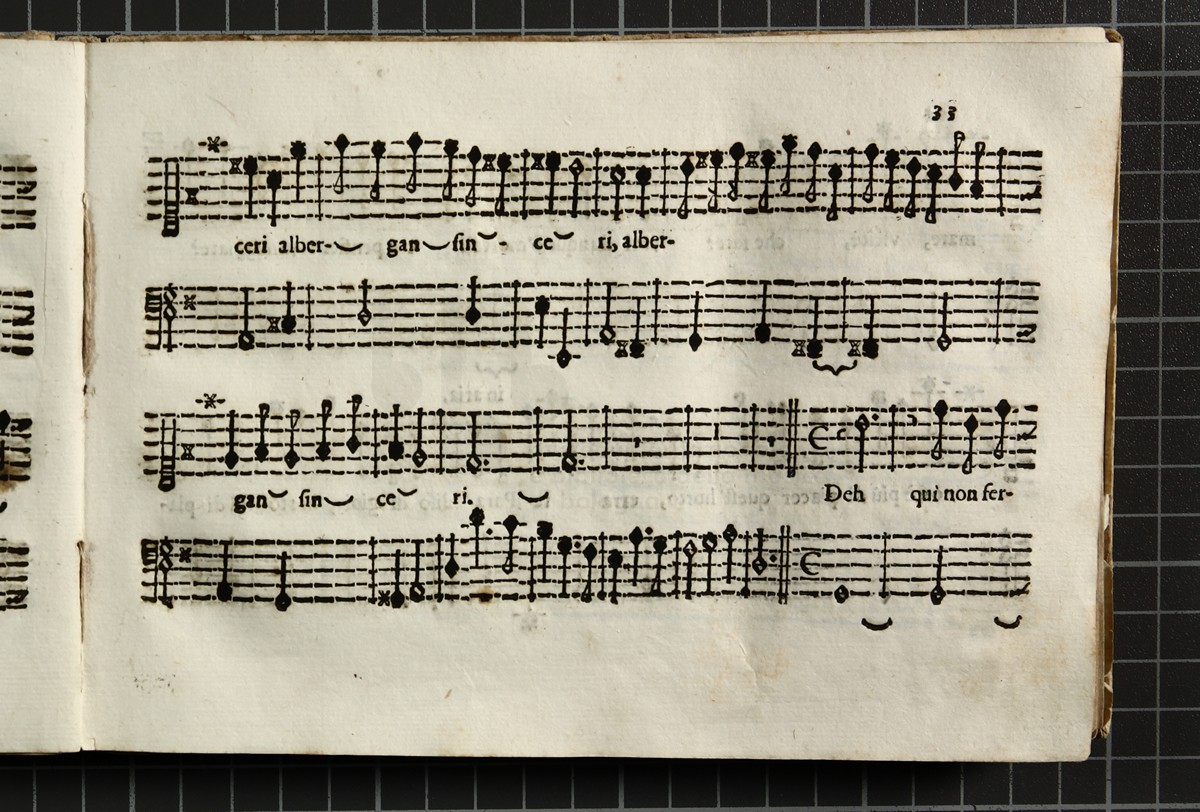 33
ceri alber- gan sin - ce ri, alber-
gan sin ce ri. Deh qui non fer-